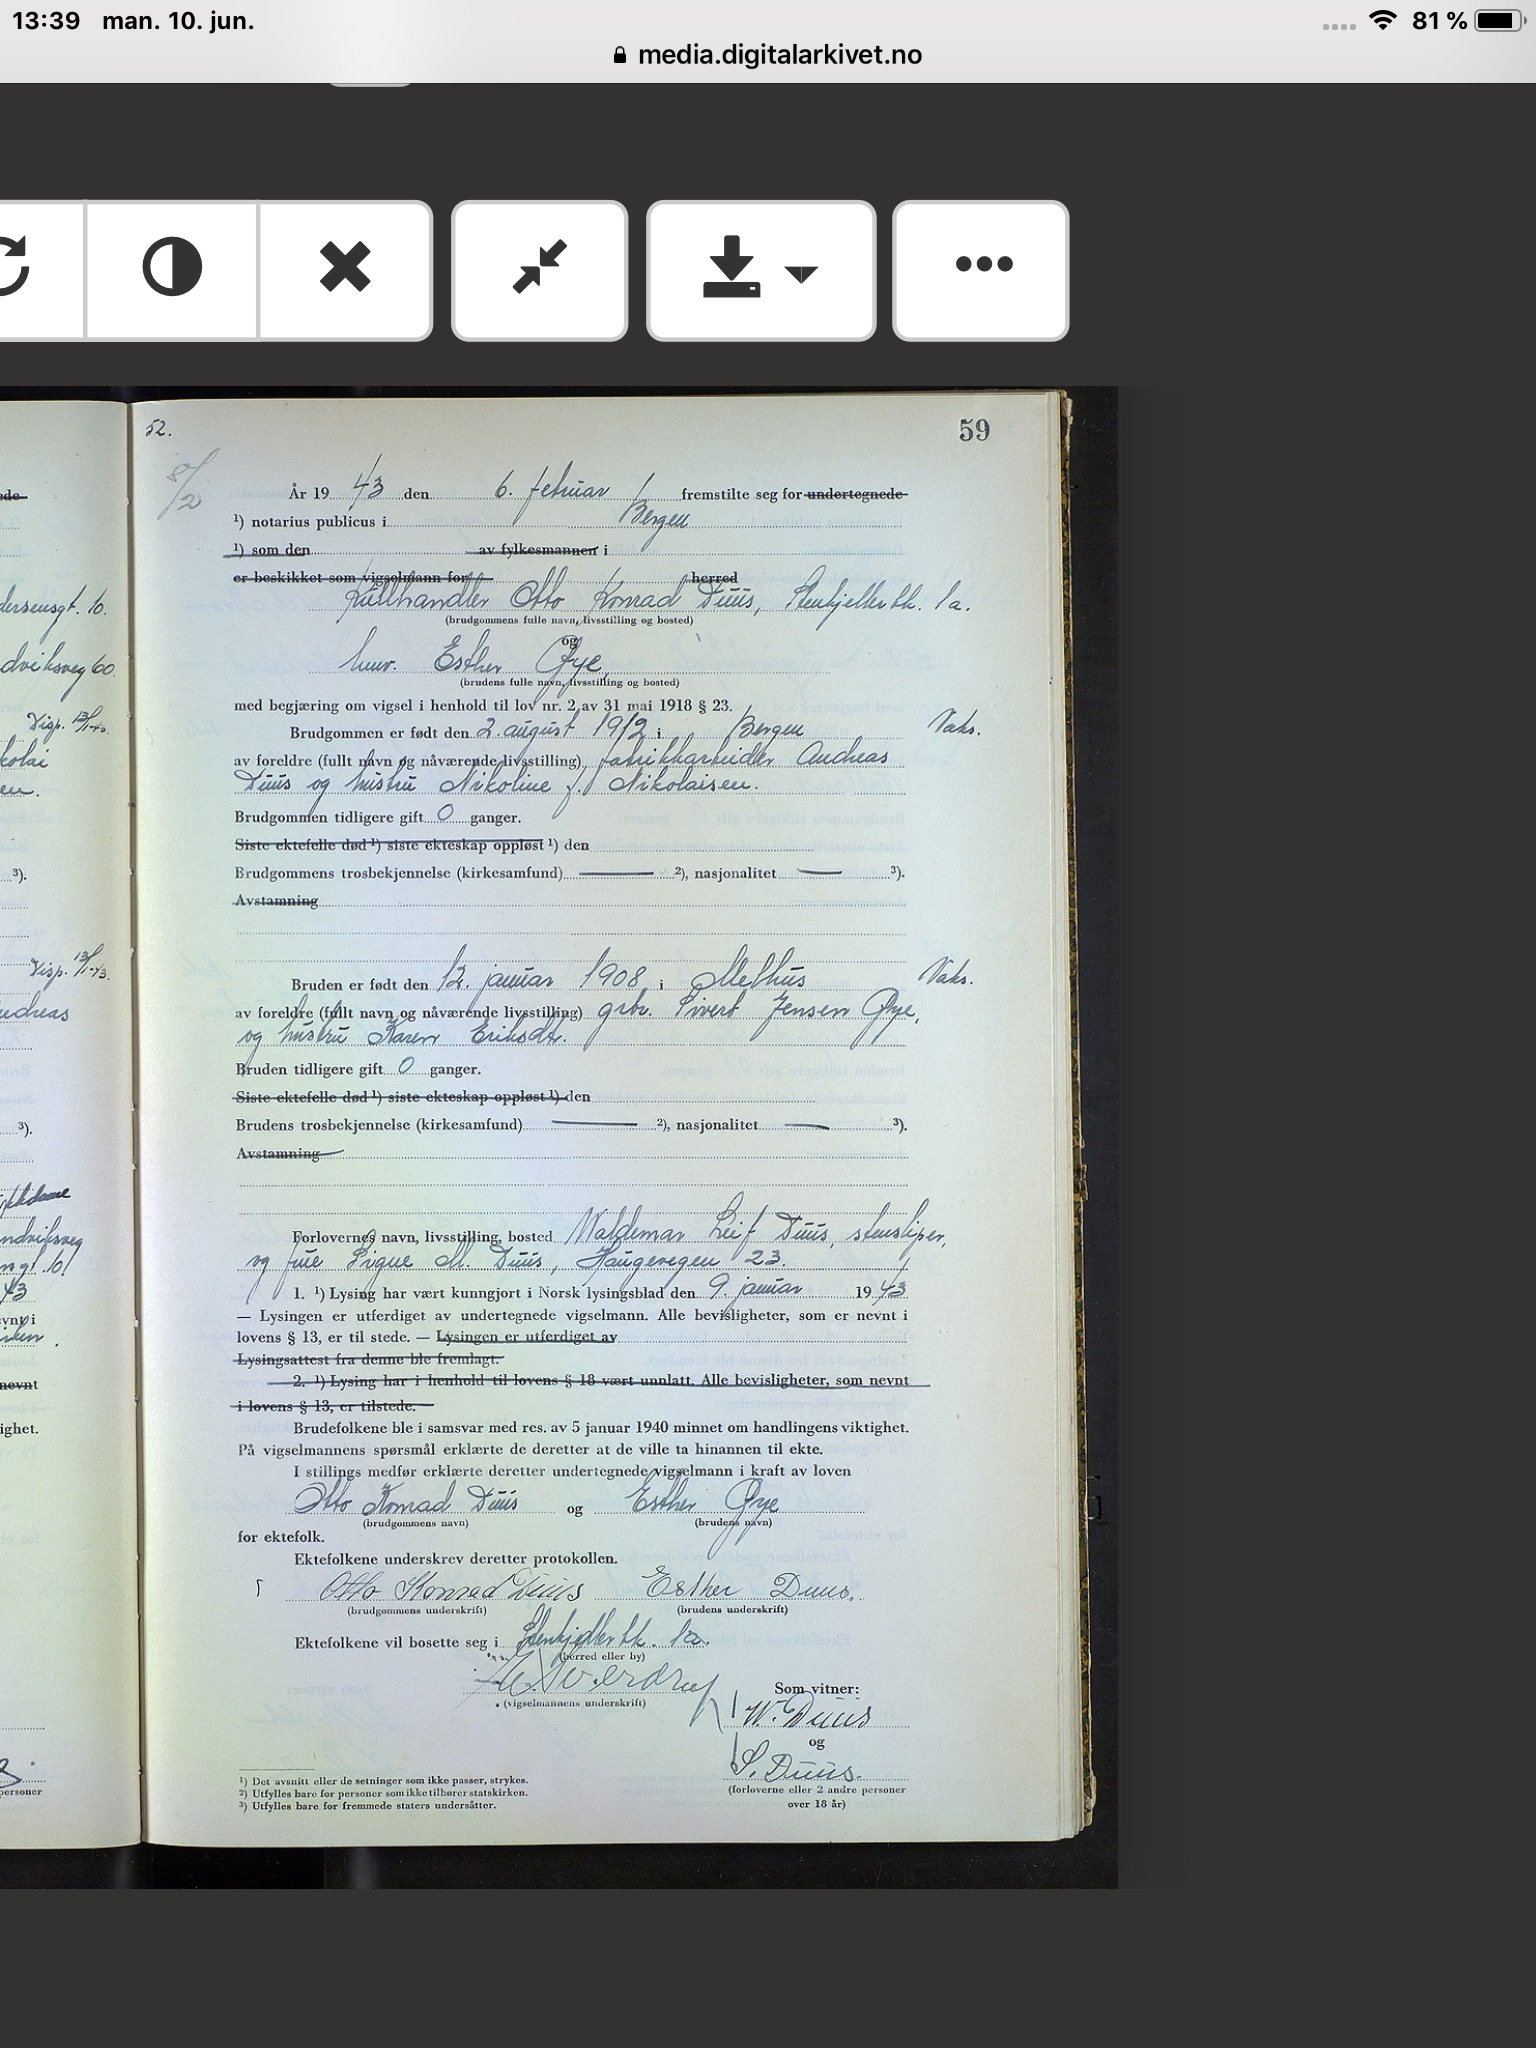 13:39 man. 10. jun. 81 %
media.digitalarkivet.no
52. 59
8/2
År 19 43 den 6. februar fremstilte seg for undertegnede
¹) notarius publicus i Bergen
¹) som den av fylkesmannen i
er beskikket som vigselmann for herred
Kullhandler Otto Konrad Duus, Stenkjellerbk. 1a.
(brudgommens fulle navn, livsstilling og bosted)
og
husv. Esther Øye,
(brudens fulle navn, livsstilling og bosted)
med begjæring om vigsel i henhold til lov nr. 2 av 31 mai 1918 § 23.
Brudgommen er født den 2. august 1912 i Bergen Vaks.
av foreldre (fullt navn og nåværende livsstilling) fabrikkarbeider Andreas
Duus og hustru Nikoline f. Nikolaisen.
Brudgommen tidligere gift 0 ganger.
Siste ektefelle død ¹) siste ekteskap oppløst ¹) den
Brudgommens trosbekjennelse (kirkesamfund) — ²), nasjonalitet — ³).
Avstamning
Bruden er født den 12. januar 1908 i Melhus Vaks.
av foreldre (fullt navn og nåværende livsstilling) grbr. Sivert Jensen Øye,
og hustru Karen Eriksdtr.
Bruden tidligere gift 0 ganger.
Siste ektefelle død ¹) siste ekteskap oppløst ¹) den
Brudens trosbekjennelse (kirkesamfund) — ²), nasjonalitet — ³).
Avstamning
Forlovernes navn, livsstilling, bosted Waldemar Leif Duus, stensliper,
og frue Signe M. Duus, Haugevegen 23.
1. ¹) Lysing har vært kunngjort i Norsk lysingsblad den 9. januar 19 43
— Lysingen er utferdiget av undertegnede vigselmann. Alle bevisligheter, som er nevnt i
lovens § 13, er til stede. — Lysingen er utferdiget av
Lysingsattest fra denne ble fremlagt.
2. ¹) Lysing har i henhold til lovens § 18 vært unnlatt. Alle bevisligheter, som nevnt
i lovens § 13, er tilstede.
Brudefolkene ble i samsvar med res. av 5 januar 1940 minnet om handlingens viktighet.
På vigselmannens spørsmål erklærte de deretter at de ville ta hinannen til ekte.
I stillings medfør erklærte deretter undertegnede vigselmann i kraft av loven
Otto Konrad Duus og Esther Øye
(brudgommens navn) (brudens navn)
for ektefolk.
Ektefolkene underskrev deretter protokollen.
Otto Konrad Duus Esther Duus.
(brudgommens underskrift) (brudens underskrift)
Ektefolkene vil bosette seg i Stenkjellerbk. 1a.
(herred eller by)
(vigselmannens underskrift)
Som vitner:
W. Duus
og
S. Duus.
(forloverne eller 2 andre personer
over 18 år)
¹) Det avsnitt eller de setninger som ikke passer, strykes.
²) Utfylles bare for personer som ikke tilhører statskirken.
³) Utfylles bare for fremmede staters undersåtter.